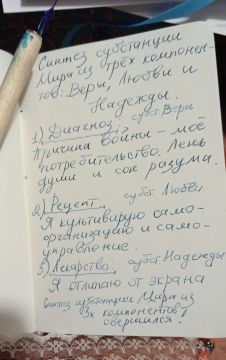 Синтез субстанции
Мира из трёх компонен-
тов: Веры, Любви и
Надежды.
1) Диагноз: субст. Веры
Причина войны - моё
потребительство. Лень
души и сон разума.
субст. Любви
2) Рецепт.
Я культивирую само-
организацию и само-
управление.
3) Лекарство: субст. Надежды
Я отлипаю от экрана
Синтез субстанции Мира из
3х компонентов
совершился!